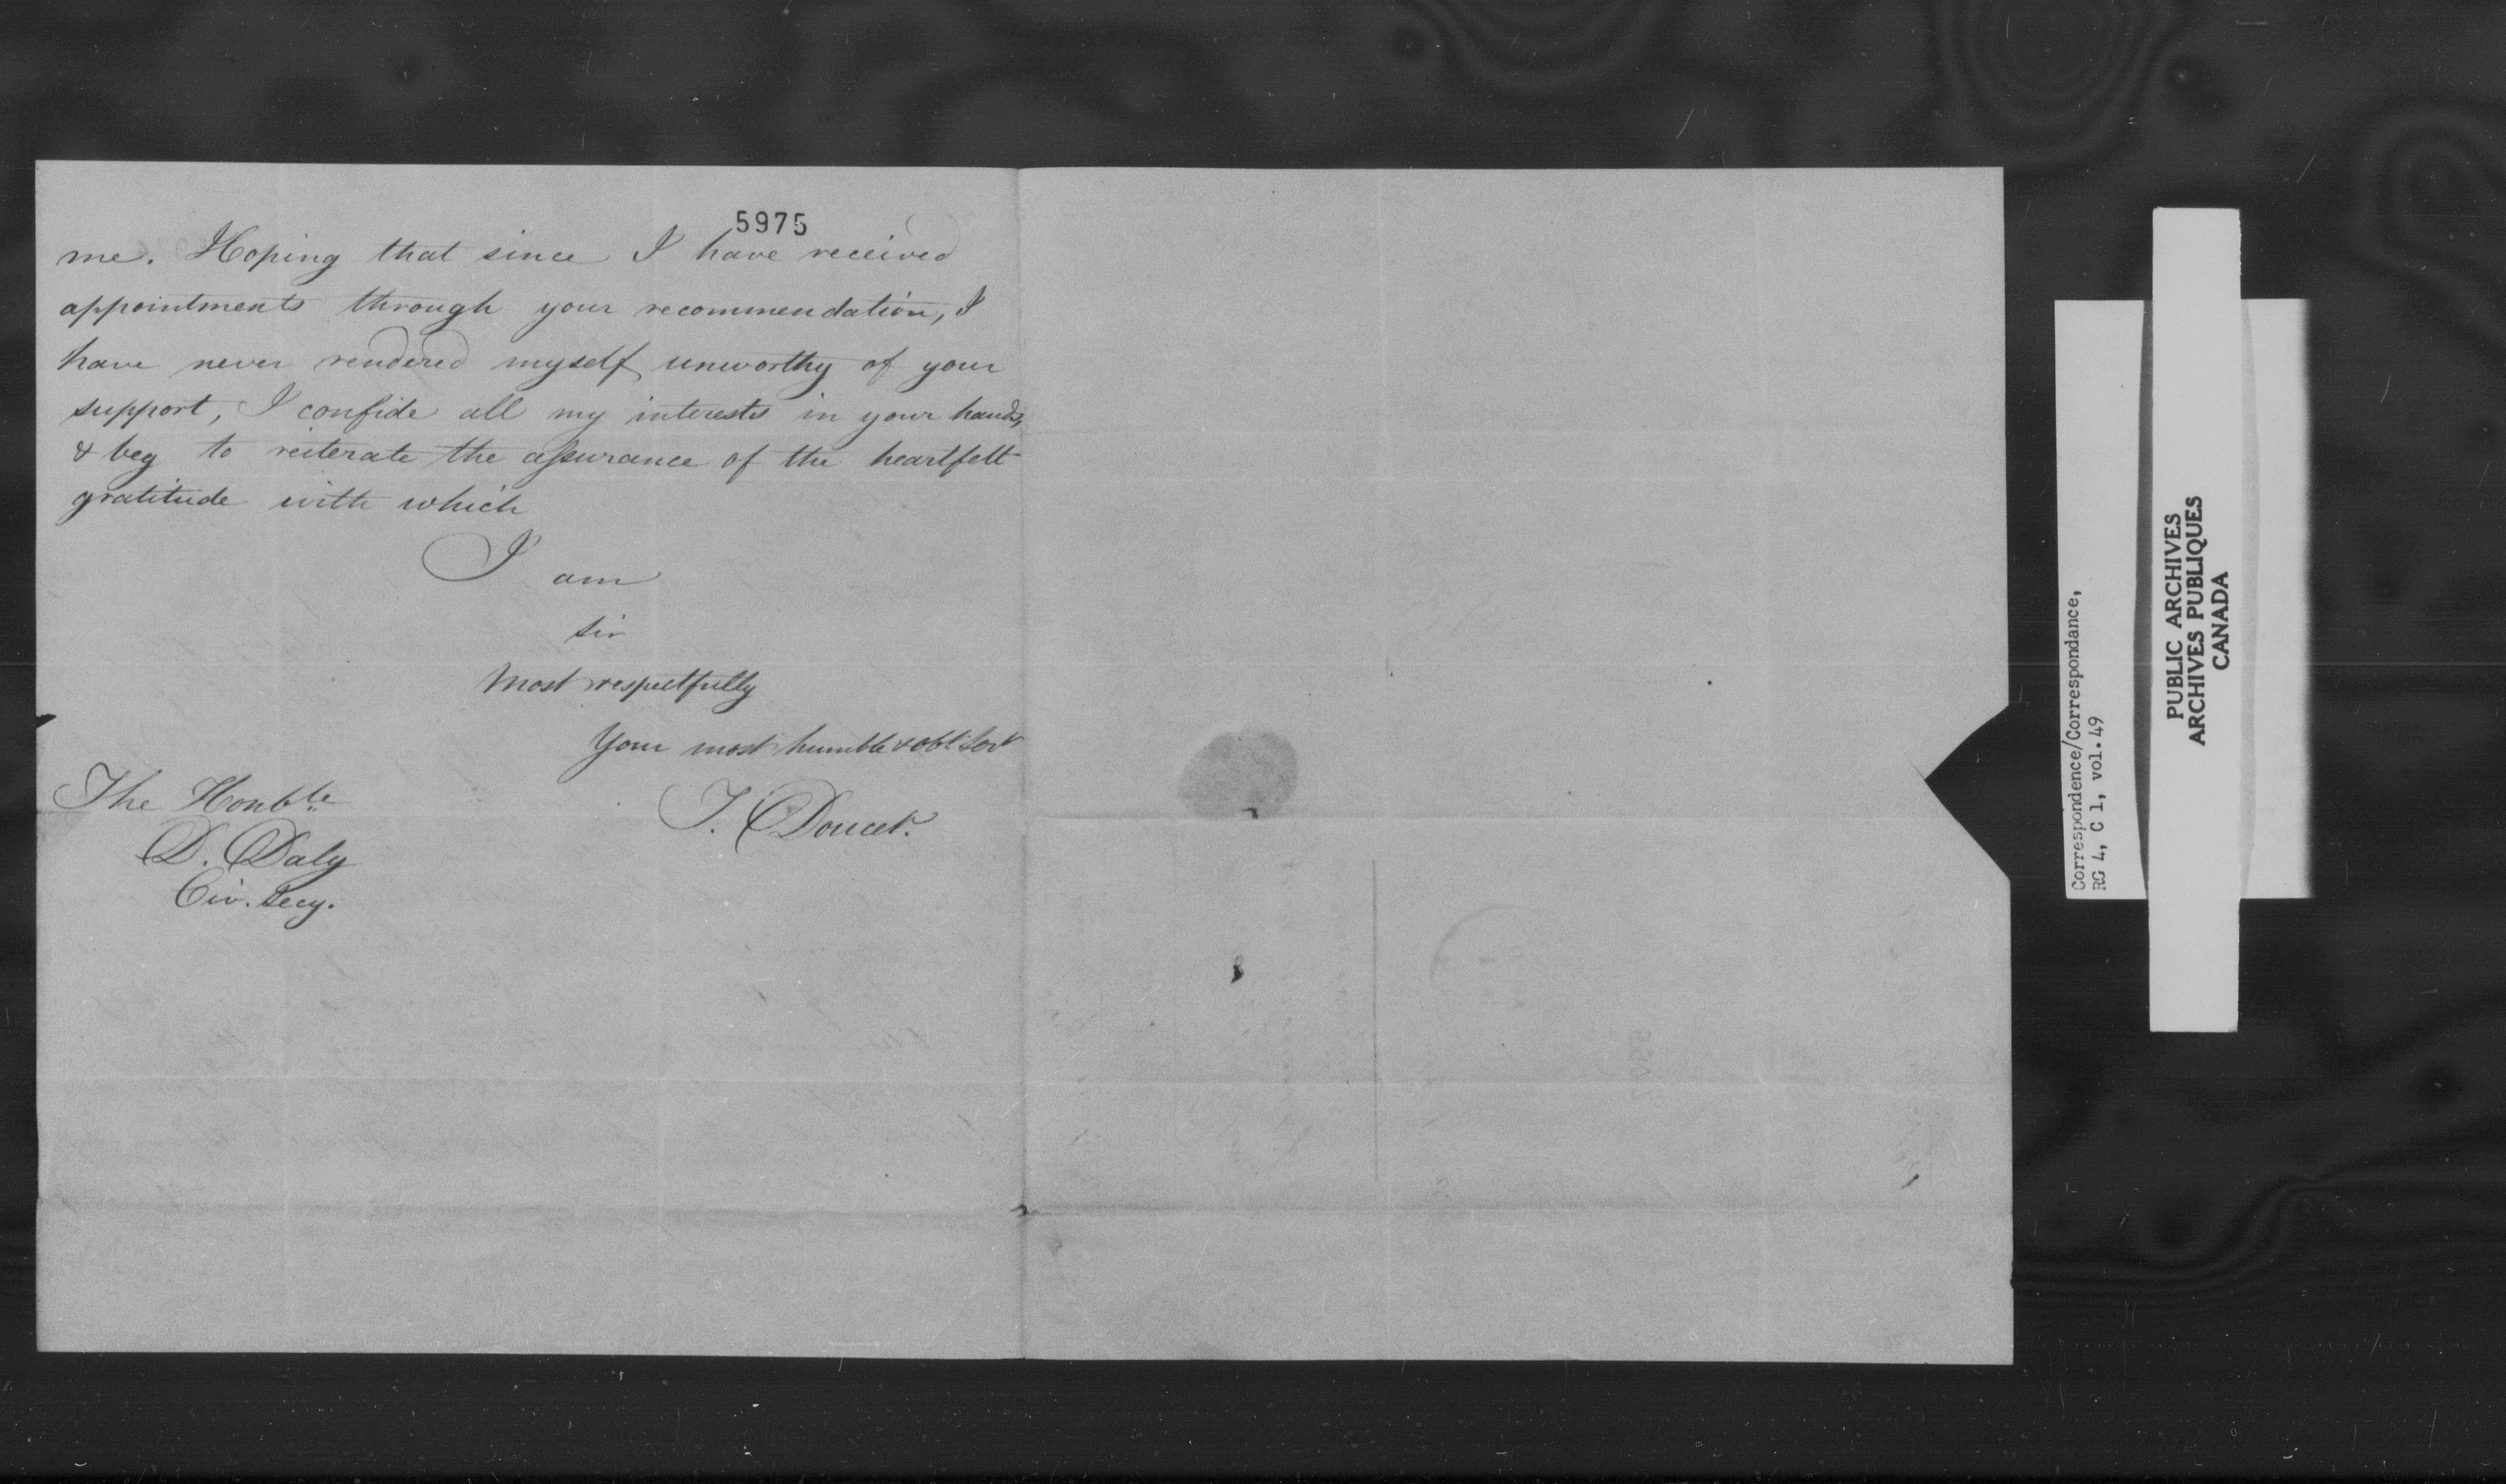 5975
me. Hoping that since I have received
appointments through your recommendation, I
have never rendered myself unworthy of your
support, I confide all my interests in your hands,
& beg to reiterate the assurance of the heartfelt
gratitude with which
I am
Sir
Most respectfully
Your most humble & obt. Sert
T. Doucet.
The Honble
D. Daly
Civ. Secy.
Correspondence/Correspondance,
RG 4, C 1, vol.49
PUBLIC ARCHIVES
ARCHIVES PUBLIQUES
CANADA